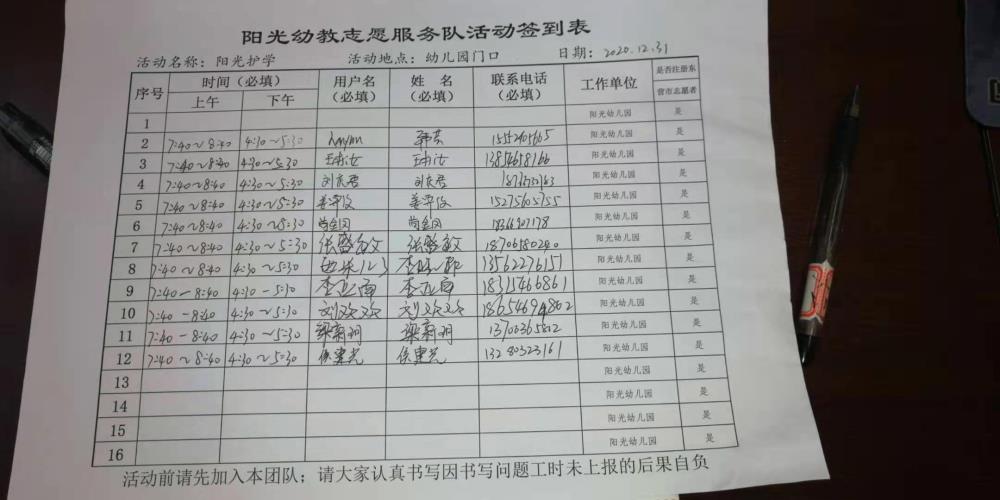 阳光幼教志愿服务队活动签到表
活动名称：阳光护学 活动地点：幼儿园门口 日期：2020.12.31
序号 时间（必填） 用户名（必填） 姓 名（必填） 联系电话（必填） 工作单位 是否注册东营市志愿者
上午 下午
1 阳光幼儿园 是
2 7:40~8:40 4:30~5:30 阳光幼儿园 是
3 7:40~8:40 4:30~5:30 阳光幼儿园 是
4 7:40~8:40 4:30~5:30 阳光幼儿园 是
5 7:40~8:40 4:30~5:30 15275605755 阳光幼儿园 是
6 7:40~8:40 4:30~5:30 阳光幼儿园 是
7 7:40~8:40 4:30~5:30 张盛敏 张盛敏 18706580240 阳光幼儿园 是
8 7:40~8:40 4:30~5:30 13562276151 阳光幼儿园 是
9 7:40-8:40 4:30-5:30 李亚南 李亚南 18315466861 阳光幼儿园 是
10 7:40-8:40 4:30~5:30 刘文文 刘文文 18654694802 阳光幼儿园 是
11 7:40-8:40 4:30~5:30 梁新明 梁新明 阳光幼儿园 是
12 7:40~8:40 4:30~5:30 13280323161 阳光幼儿园 是
13 阳光幼儿园 是
14 阳光幼儿园 是
15 阳光幼儿园 是
16 阳光幼儿园 是
活动前请先加入本团队；请大家认真书写因书写问题工时未上报的后果自负